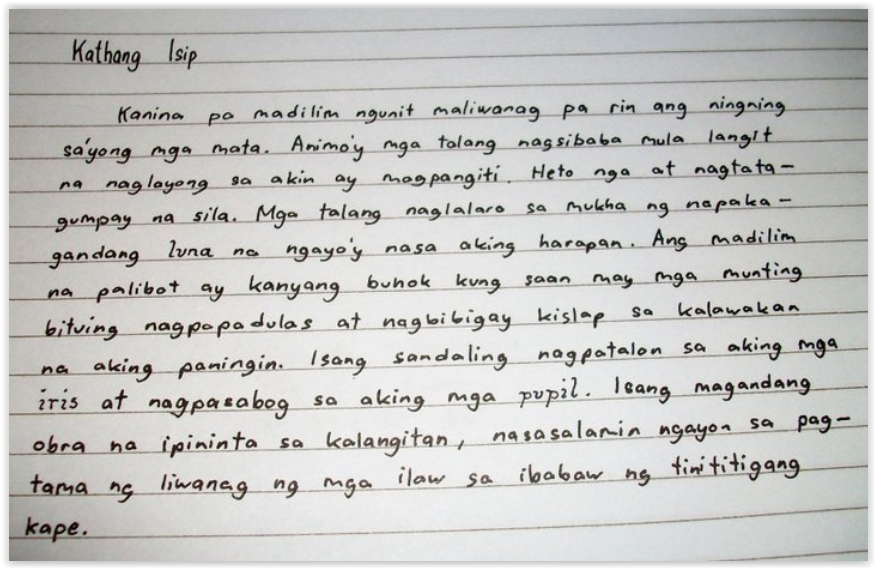 Kathang Isip
Kanina pa madilim ngunit maliwanag pa rin ang ningning
sa'yong mga mata. Animo'y mga talang nagsibaba mula langit
na naglayong sa akin ay magpangiti. Heto nga at nagtata-
gumpay na sila. Mga talang naglalaro sa mukha ng napaka-
gandang luna na ngayo'y nasa aking harapan. Ang madilim
na palibot ay kanyang buhok kung saan may mga munting
bituing nagpapadulas at nagbibigay kislap sa kalawakan
na aking paningin. Isang sandaling nagpatalon sa aking mga
iris at nagpasabog sa aking mga pupil. Isang magandang
obra na ipininta sa kalangitan, nasasalamin ngayon sa pag-
tama ng liwanag ng mga ilaw sa ibabaw ng tinititigang
kape.